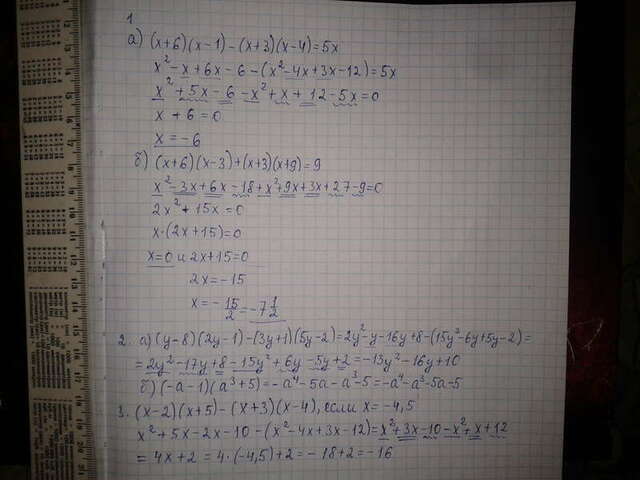 1
а) (x+6)(x-1)-(x+3)(x-4)=5x
x²-x+6x-6-(x²-4x+3x-12)=5x
x²+5x-6-x²+x+12-5x=0
x+6=0
x=-6
б) (x+6)(x-3)+(x+3)(x+9)=9
x²-3x+6x-18+x²+9x+3x+27-9=0
2x²+15x=0
x·(2x+15)=0
x=0 и 2x+15=0
2x=-15
x=-15/2=-7 1/2
2. а) (y-8)(2y-1)-(3y+1)(5y-2)=2y²-y-16y+8-(15y²-6y+5y-2)=
=2y²-17y+8-15y²+6y-5y+2=-13y²-16y+10
б) (-a-1)(a³+5)=-a⁴-5a-a³-5=-a⁴-a³-5a-5
3. (x-2)(x+5)-(x+3)(x-4), если x=-4,5
x²+5x-2x-10-(x²-4x+3x-12)=x²+3x-10-x²+x+12
=4x+2=4·(-4,5)+2=-18+2=-16